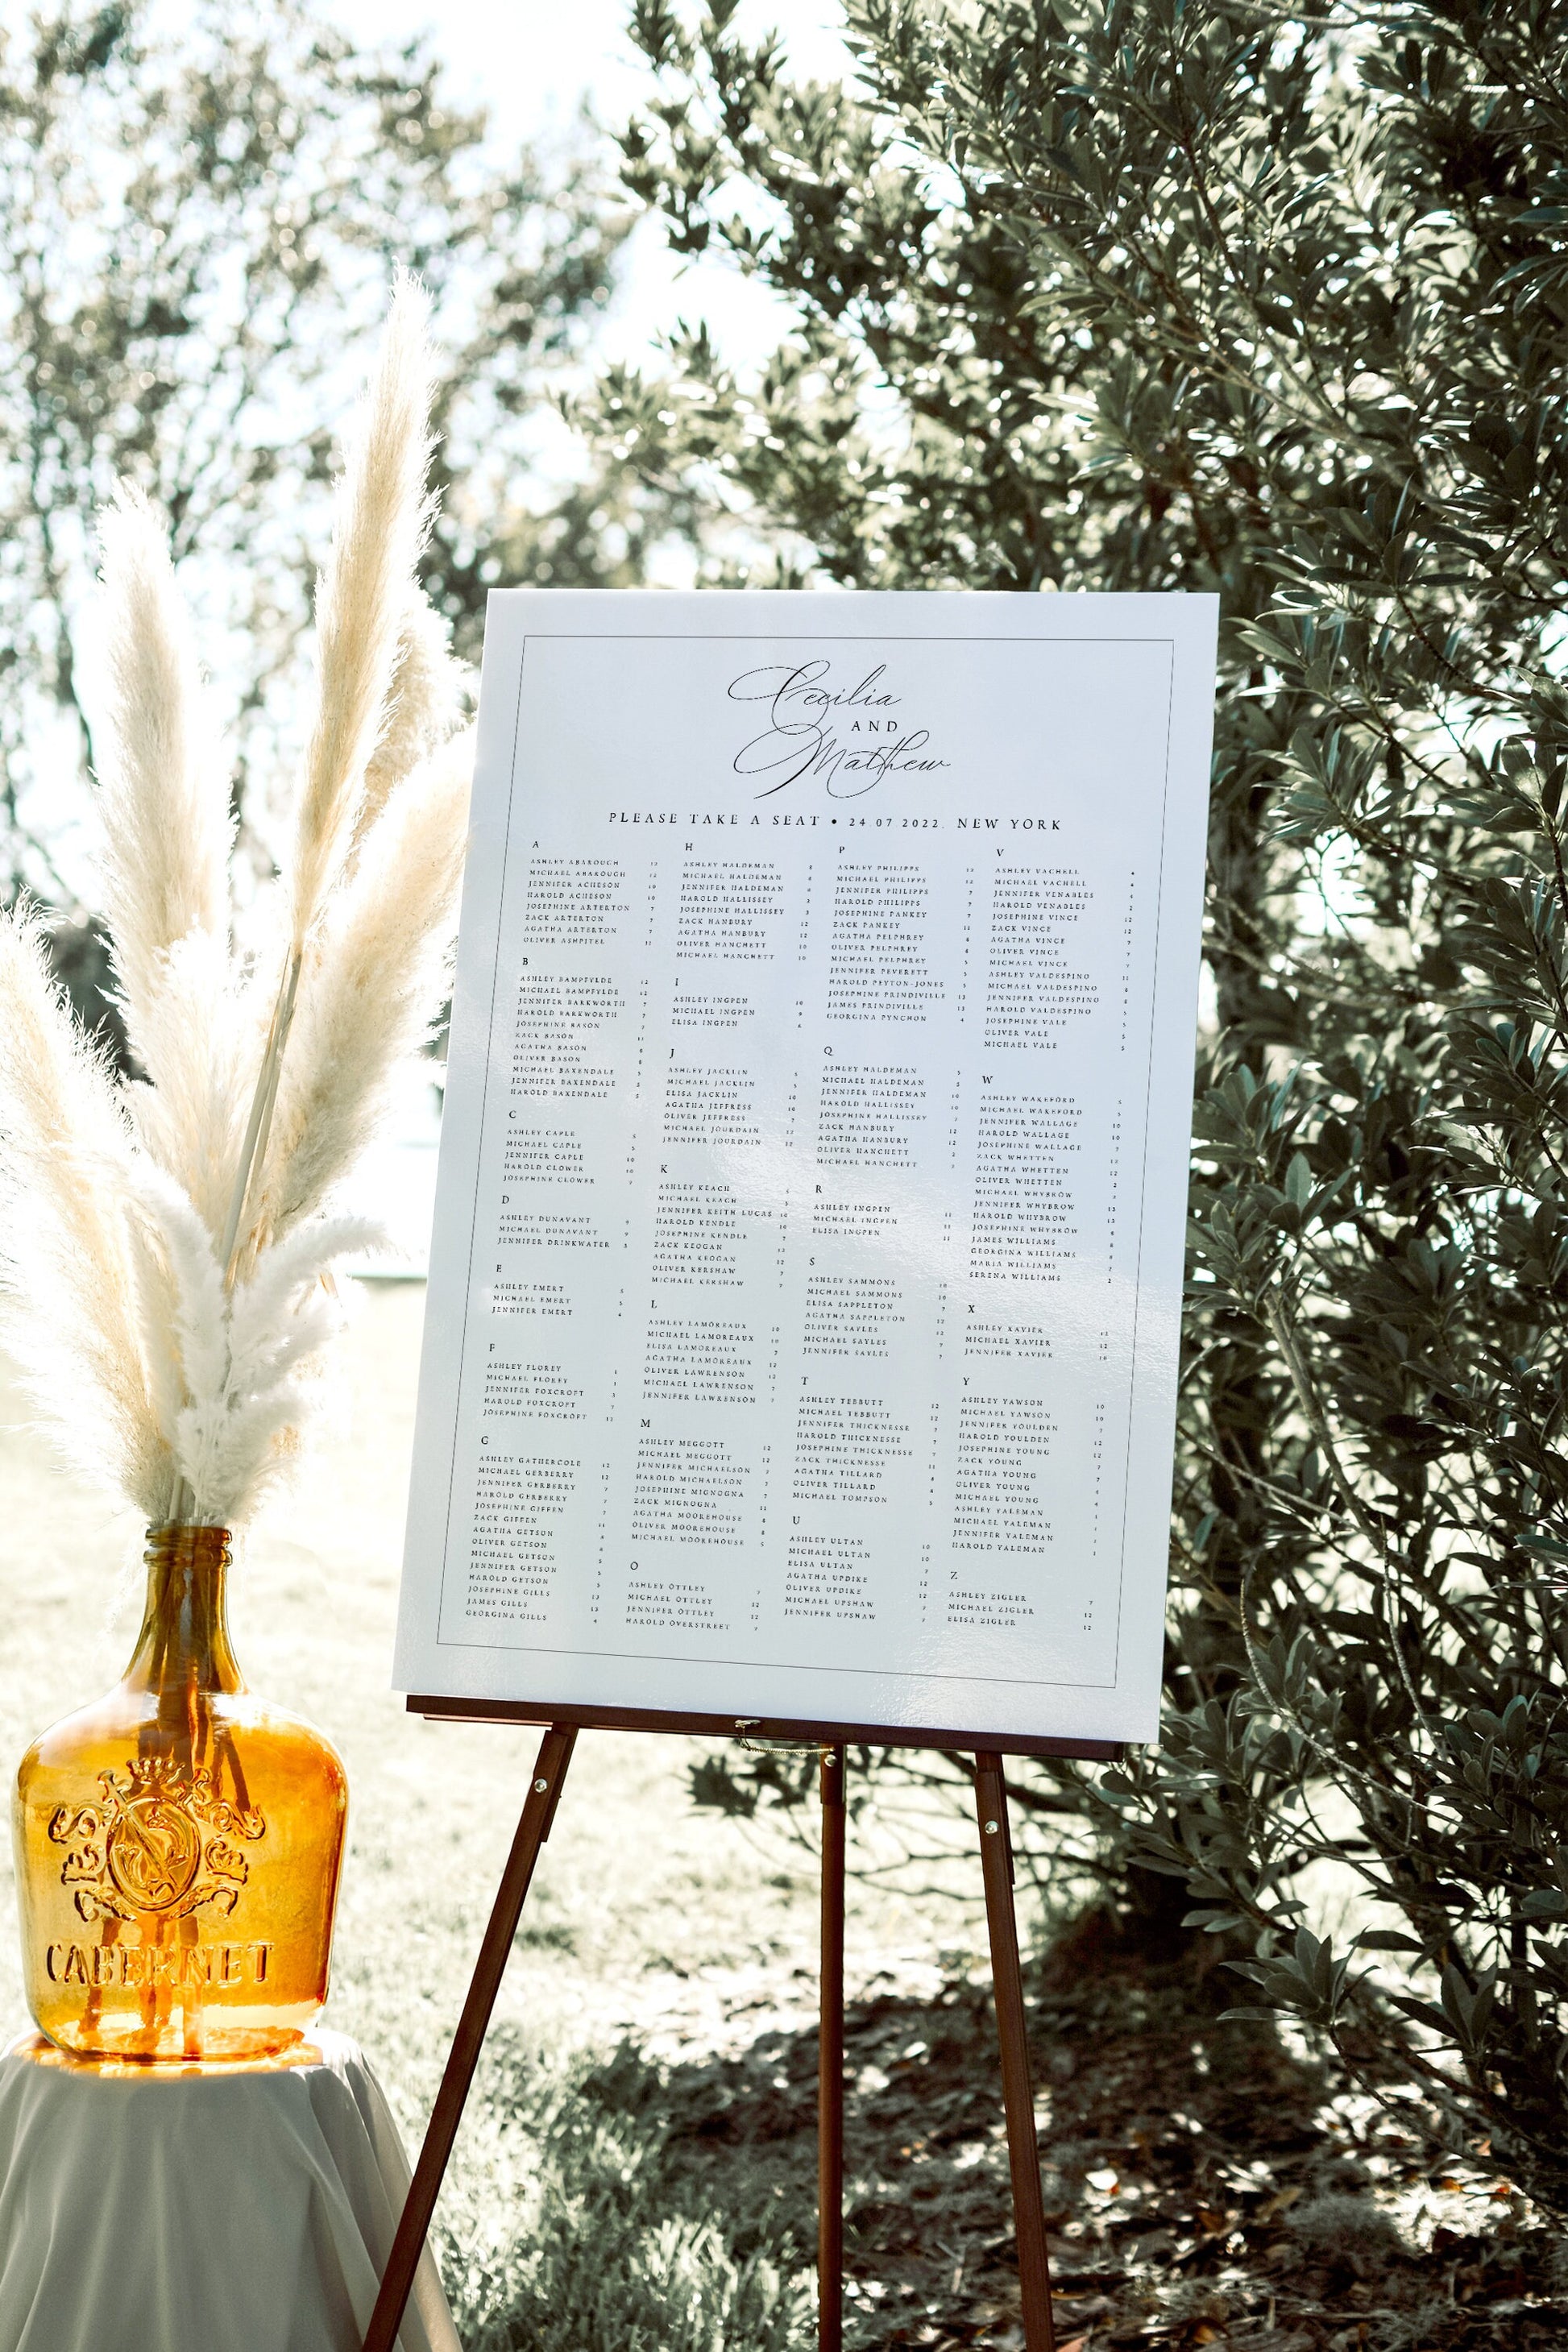 Cecilia
AND
Matthew
PLEASE TAKE A SEAT • 24.07.2022. NEW YORK
A
ASHLEY ABAROUGH 12
MICHAEL ABAROUGH 12
JENNIFER ACHESON 10
HAROLD ACHESON 10
JOSEPHINE ARTERTON 7
ZACK ARTERTON 7
AGATHA ARTERTON 7
OLIVER ASHPITEL 11
B
ASHLEY BAMPFYLDE 12
MICHAEL BAMPFYLDE 12
JENNIFER BARKWORTH 7
HAROLD BARKWORTH 7
JOSEPHINE BASON 7
ZACK BASON 11
AGATHA BASON 8
OLIVER BASON 8
MICHAEL BAXENDALE 5
JENNIFER BAXENDALE 5
HAROLD BAXENDALE 5
C
ASHLEY CAPLE 5
MICHAEL CAPLE 5
JENNIFER CAPLE 10
HAROLD CLOWER 10
JOSEPHINE CLOWER 7
D
ASHLEY DUNAVANT 9
MICHAEL DUNAVANT 9
JENNIFER DRINKWATER 3
E
ASHLEY EMERT
MICHAEL EMERT 5
JENNIFER EMERT 4
F
ASHLEY FLOREY 1
MICHAEL FLOREY 1
JENNIFER FOXCROFT 3
HAROLD FOXCROFT 7
JOSEPHINE FOXCROFT 12
G
ASHLEY GATHERCOLE 12
MICHAEL GERBERRY 12
JENNIFER GERBERRY 7
HAROLD GERBERRY 7
JOSEPHINE GIFFEN 7
ZACK GIFFEN 11
AGATHA GETSON 8
OLIVER GETSON 8
MICHAEL GETSON 5
JENNIFER GETSON 5
HAROLD GETSON 5
JOSEPHINE GILLS 13
JAMES GILLS 13
GEORGINA GILLS 4
H
ASHLEY HALDEMAN 8
MICHAEL HALDEMAN
JENNIFER HALDEMAN
HAROLD HALLISSEY 3
JOSEPHINE HALLISSEY 3
ZACK HANBURY 12
AGATHA HANBURY 12
OLIVER HANCHETT 10
MICHAEL HANCHETT 10
I
ASHLEY INGPEN 10
MICHAEL INGPEN 9
ELISA INGPEN
J
ASHLEY JACKLIN 5
MICHAEL JACKLIN 5
ELISA JACKLIN 10
AGATHA JEFFRESS 10
OLIVER JEFFRESS 7
MICHAEL JOURDAIN 12
JENNIFER JOURDAIN 12
K
ASHLEY KEACH 5
MICHAEL KEACH 5
JENNIFER KEITH LUCAS 10
HAROLD KENDLE 10
JOSEPHINE KENDLE 7
ZACK KEOGAN 12
AGATHA KEOGAN 12
OLIVER KERSHAW 7
MICHAEL KERSHAW 7
L
ASHLEY LAMOREAUX 10
MICHAEL LAMOREAUX 10
ELISA LAMOREAUX 7
AGATHA LAMOREAUX 12
OLIVER LAWRENSON 12
MICHAEL LAWRENSON 7
JENNIFER LAWRENSON 7
M
ASHLEY MEGGOTT 12
MICHAEL MEGGOTT 12
JENNIFER MICHAELSON 7
HAROLD MICHAELSON 7
JOSEPHINE MIGNOGNA 7
ZACK MIGNOGNA 11
AGATHA MOOREHOUSE 8
OLIVER MOOREHOUSE 8
MICHAEL MOOREHOUSE 5
O
ASHLEY OTTLEY 7
MICHAEL OTTLEY 12
JENNIFER OTTLEY 12
HAROLD OVERSTREET 7
P
ASHLEY PHILIPPS 12
MICHAEL PHILIPPS 12
JENNIFER PHILIPPS 7
HAROLD PHILIPPS 7
JOSEPHINE PANKEY 7
ZACK PANKEY 11
AGATHA PELPHREY 8
OLIVER PELPHREY 8
MICHAEL PELPHREY 5
JENNIFER PEVERETT 5
HAROLD PEYTON-JONES 5
JOSEPHINE PRINDIVILLE 13
JAMES PRINDIVILLE 13
GEORGINA PYNCHON 4
Q
ASHLEY HALDEMAN 5
MICHAEL HALDEMAN 5
JENNIFER HALDEMAN 10
HAROLD HALLISSEY 10
JOSEPHINE HALLISSEY 7
ZACK HANBURY 12
AGATHA HANBURY 12
OLIVER HANCHETT
MICHAEL HANCHETT
R
ASHLEY INGPEN 11
MICHAEL INGPEN 11
ELISA INGPEN 11
S
ASHLEY SAMMONS 10
MICHAEL SAMMONS 10
ELISA SAPPLETON 7
AGATHA SAPPLETON 12
OLIVER SAYLES 12
MICHAEL SAYLES 7
JENNIFER SAYLES 7
T
ASHLEY TEBBUTT 12
MICHAEL TEBBUTT 12
JENNIFER THICKNESSE 7
HAROLD THICKNESSE 7
JOSEPHINE THICKNESSE 7
ZACK THICKNESSE 11
AGATHA TILLARD 8
OLIVER TILLARD 8
MICHAEL TOMPSON 5
U
ASHLEY ULTAN 10
MICHAEL ULTAN 10
ELISA ULTAN 7
AGATHA UPDIKE 12
OLIVER UPDIKE 12
MICHAEL UPSHAW 7
JENNIFER UPSHAW 7
V
ASHLEY VACHELL 4
MICHAEL VACHELL 4
JENNIFER VENABLES 6
HAROLD VENABLES 2
JOSEPHINE VINCE 12
ZACK VINCE 12
AGATHA VINCE 7
OLIVER VINCE 7
MICHAEL VINCE 7
ASHLEY VALDESPINO 11
MICHAEL VALDESPINO 8
JENNIFER VALDESPINO 8
HAROLD VALDESPINO 5
JOSEPHINE VALE 5
OLIVER VALE 5
MICHAEL VALE 5
W
ASHLEY WAKEFORD 5
MICHAEL WAKEFORD 5
JENNIFER WALLAGE 10
HAROLD WALLAGE 10
JOSEPHINE WALLAGE 7
ZACK WHETTEN 12
AGATHA WHETTEN 12
OLIVER WHETTEN 2
MICHAEL WHYBROW
JENNIFER WHYBROW 13
HAROLD WHYBROW 13
JOSEPHINE WHYBROW 8
JAMES WILLIAMS 8
GEORGINA WILLIAMS
MARIA WILLIAMS
SERENA WILLIAMS 2
X
ASHLEY XAVIER 12
MICHAEL XAVIER 12
JENNIFER XAVIER 10
Y
ASHLEY YAWSON 10
MICHAEL YAWSON 10
JENNIFER YOULDEN 7
HAROLD YOULDEN 12
JOSEPHINE YOUNG 12
ZACK YOUNG 7
AGATHA YOUNG 7
OLIVER YOUNG 4
MICHAEL YOUNG 4
ASHLEY YALEMAN
MICHAEL YALEMAN
JENNIFER YALEMAN
HAROLD YALEMAN
Z
ASHLEY ZIGLER 7
MICHAEL ZIGLER 12
ELISA ZIGLER 12
CABERNET